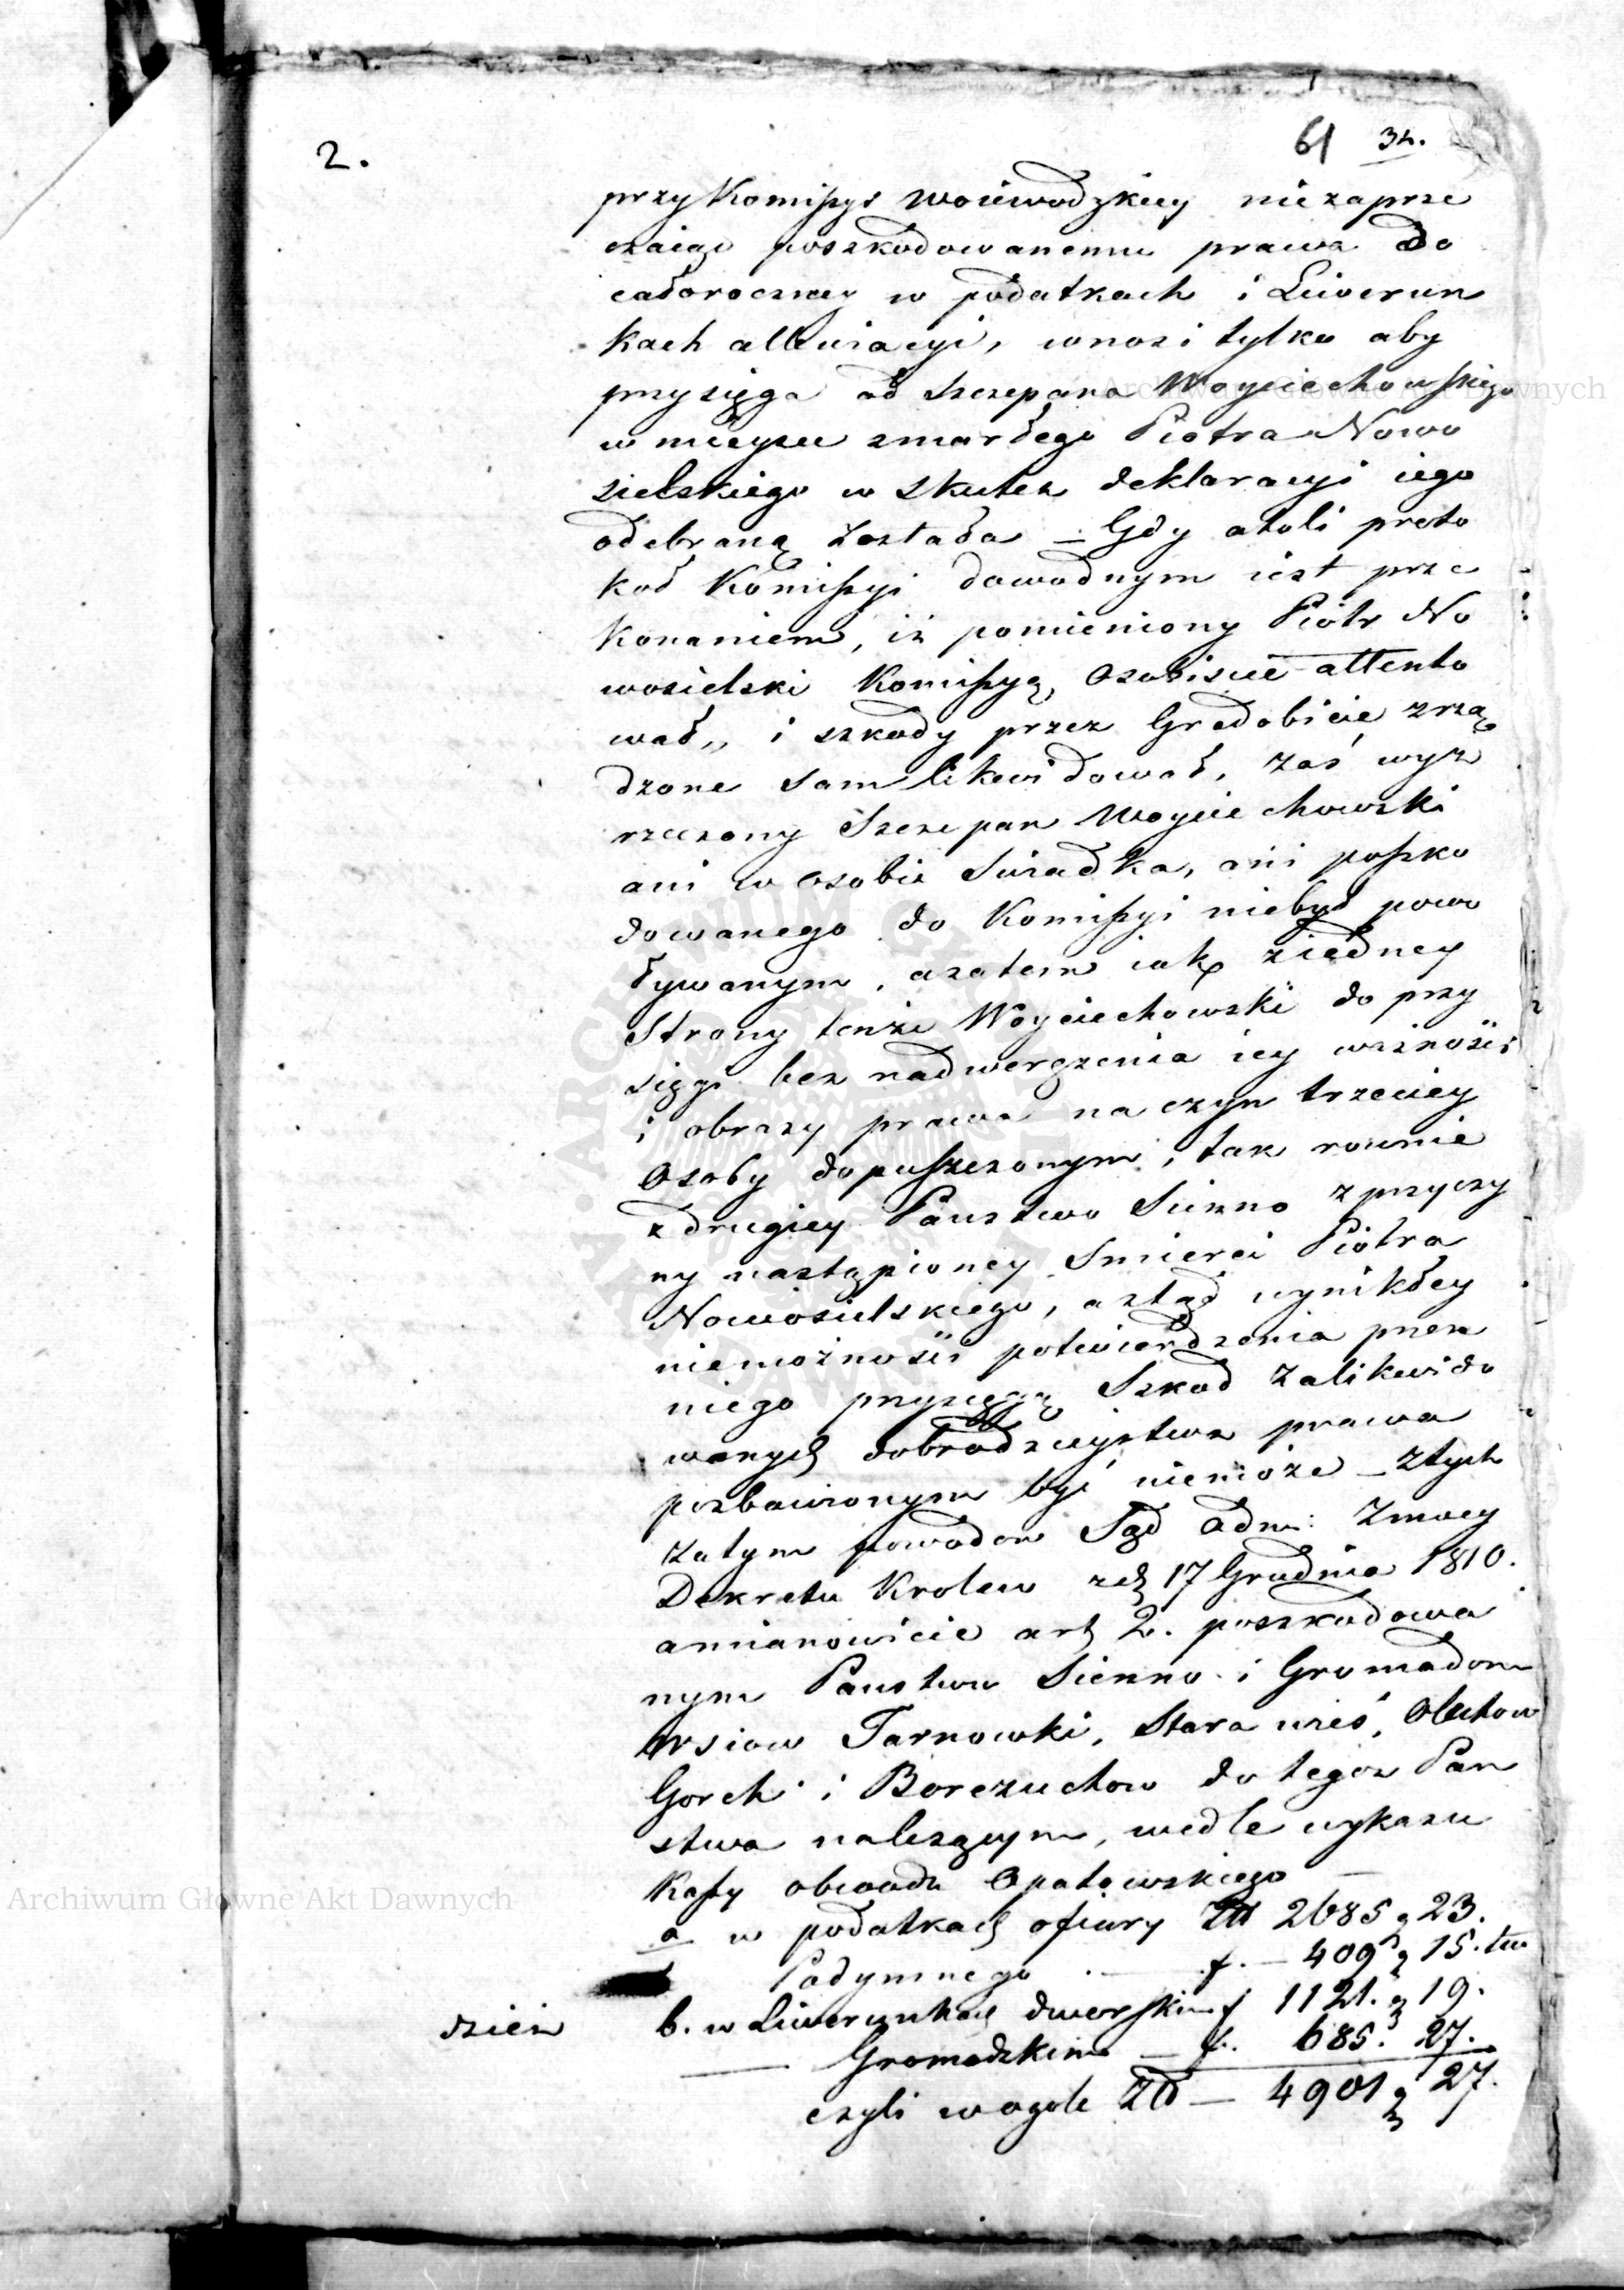 2.
61 32.
przy Komissyi Woiewodzkiey niezaprze
czaiąc poszkodowanemu prawa do
całoroczney w podatkach i Liwerun
kach allewiacyi, wnosi tylko aby
przysięga od Szczepana Woyciechowskiego
w mieyscu zmarłego Piotra Nowo
sielskiego w skutek deklaracyi iego
odebraną została – Gdy atoli proto
koł Komissyi dowodnym iest prze
konaniem, iż pomieniony Piotr No
wosielski Komissyą, osobiscie attento
wał,, i szkody przez Gradobicie zrzą
dzone sam likwidował, zaś wyż
rzeczony Szczepan Woyciechowski
ani w osobie Swiadka, ani poszko
dowanego do Komissyi niebył powo
ływanym, azatem iak ziedney
Strony tenże Woyciechowski do przy
sięgi bez nadwerężenia iey ważności
i obrazy prawa na czyn trzeciey
Osoby dopuszczonym, tak rownie
z drugiey Panstwo Sienno z przyczy
ny nastąpioney Smierci Piotra
Nowosielskiego, a ztąd wynikłey
niemożności potwierdzenia przez
niego przysięgą Szkod zalikwido
wanych dobrodzieystwa prawa
pozbawionym być niemoże – Ztych
zatym powodow Sąd Adm: Zmocy
Dekretu Krolew zd 17 Grudnia 1810.
amianowicie art 2. poszkodowa
nym Panstwu Sienno i Gromadom
Wsiow Tarnowki, Stara wieś, Olechow
Gorek i Borczuchow do tegoż Pan
stwa należącym, wedle wykazu
Kassy obwodu Opatowskiego –
a w podatkach ofiary Zł 2685 g 23.
Podymnego – f. – 409 g 15. tu
dzież
b. w Liwerunkach dworskim f 1121. g 19.
— Gromadzkim – f. 685. 27.
czyli wogole Zł – 4901 g 27.
Archiwum Główne Akt Dawnych
Archiwum Główne Akt Dawnych